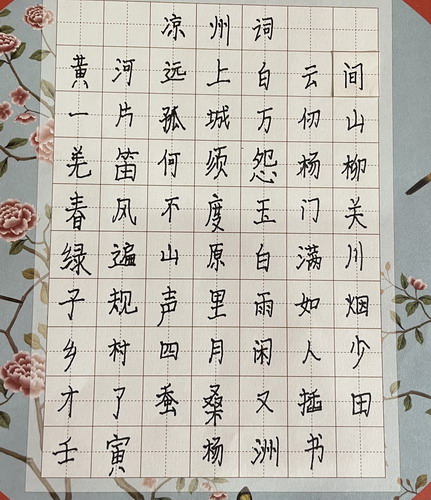 凉州词
黄河远上白云间
一片孤城万仞山
羌笛何须怨杨柳
春风不度玉门关
绿遍山原白满川
子规声里雨如烟
乡村四月闲人少
才了蚕桑又插田
壬寅 杨洲书